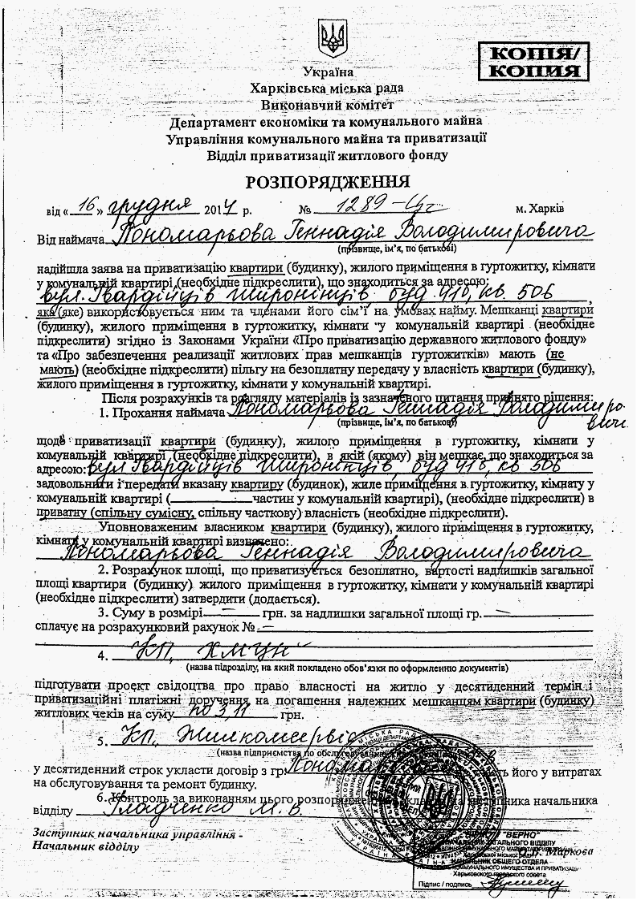 КОПІЯ/
КОПИЯ
Україна
Харківська міська рада
Виконавчий комітет
Департамент економіки та комунального майна
Управління комунального майна та приватизації
Відділ приватизації житлового фонду
РОЗПОРЯДЖЕННЯ
від « 16 » грудня 2014 р. № 1289- м. Харків
Від наймача Пономарьова Геннадія Володимировича
(прізвище, ім'я, по батькові)
надійшла заява на приватизацію квартири (будинку), жилого приміщення в гуртожитку, кімнати
у комунальній квартирі (необхідне підкреслити), що знаходиться за адресою:
вул. Гвардійців Широнінців буд кв. 506 ,
яка (яке) використовується ним та членами його сім'ї на умовах найму. Мешканці квартири
(будинку), жилого приміщення в гуртожитку, кімнати у комунальній квартирі (необхідне
підкреслити) згідно із Законами України «Про приватизацію державного житлового фонду»
та «Про забезпечення реалізації житлових прав мешканців гуртожитків» мають (не
мають) (необхідне підкреслити) пільгу на безоплатну передачу у власність квартири (будинку),
жилого приміщення в гуртожитку, кімнати у комунальній квартирі.
Після розрахунків та розгляду матеріалів із зазначеного питання прийнято рішення:
1. Прохання наймача Пономарьова Геннадія Володимировича
(прізвище, ім'я, по батькові)
щодо приватизації квартири (будинку), жилого приміщення в гуртожитку, кімнати у
комунальній квартирі (необхідне підкреслити), в якій (якому) він мешкає, що знаходиться за
адресою: вул Гвардійців Широнінців, буд кв 506
задовольнити і передати вказану квартиру (будинок), жиле приміщення в гуртожитку, кімнату у
комунальній квартирі ( частин у комунальній квартирі), (необхідне підкреслити) в
приватну (спільну сумісну, спільну часткову) власність (необхідне підкреслити).
Уповноваженим власником квартири (будинку), жилого приміщення в гуртожитку,
кімнати у комунальній квартирі визначено:
Пономарьова Геннадія Володимировича
2. Розрахунок площі, що приватизується безоплатно, вартості надлишків загальної
площі квартири (будинку) жилого приміщення в гуртожитку, кімнати у комунальній квартирі
(необхідне підкреслити) затвердити (додається).
3. Суму в розмірі — грн. за надлишки загальної площі гр. —
сплачує на розрахунковий рахунок № —
4. КП "ХМЦН"
(назва підрозділу, на який покладено обов'язки по оформленню документів)
підготувати проект свідоцтва про право власності на житло у десятиденний термін і
приватизаційні платіжні доручення на погашення належних мешканцям квартири (будинку)
житлових чеків на суму по 3,11 грн.
5. КП "Жилкомсервіс
(назва підприємства по обслуговуванню
у десятиденний строк укласти договір з гр. його у витратах
на обслуговування та ремонт будинку.
6. Контроль за виконанням цього розпорядження начальника
відділу Гладченко М. В.
Заступник начальника управління -
Начальник відділу
О.В. Маркова
"ВЕРНО"
НАЧАЛЬНИК ЗАГАЛЬНОГО ВІДДІЛУ
НАЧАЛЬНИК ОБЩЕГО ОТДЕЛА
Харьковского городского совета
Підпис / подпись